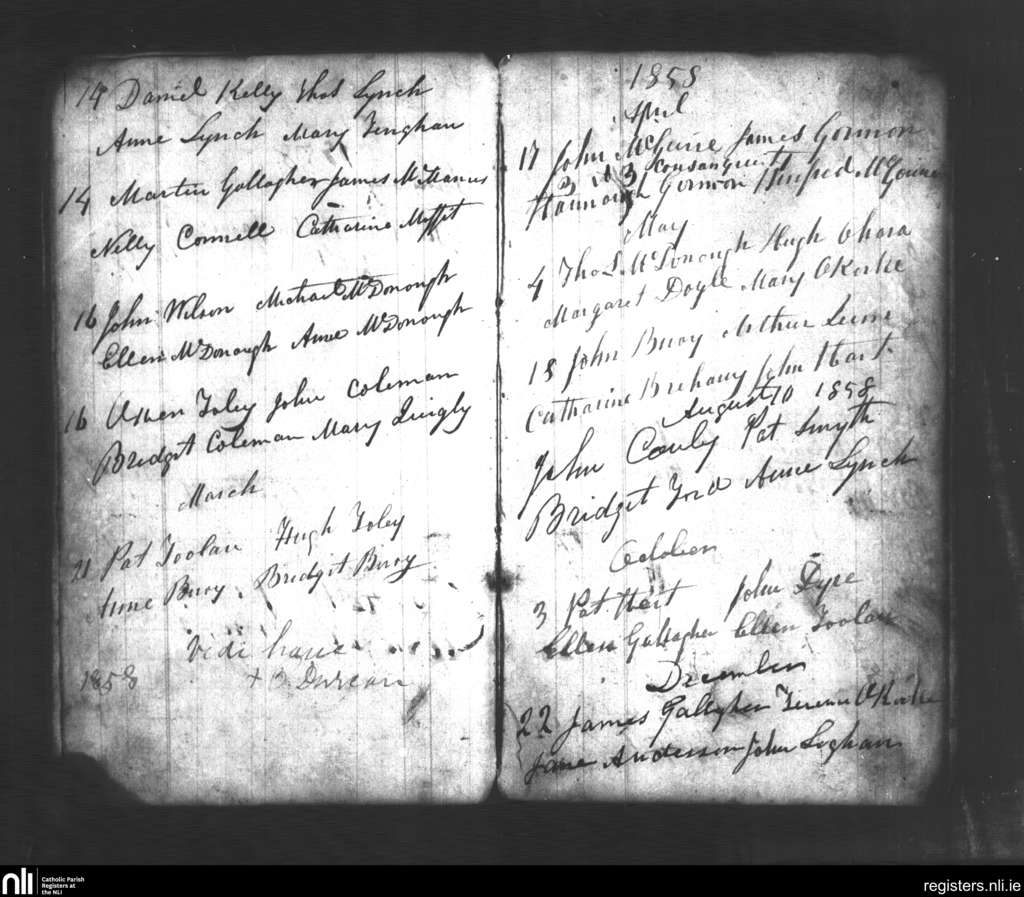 14 Daniel Kelly Thos Lynch
Anne Lynch Mary Fenghan
14 Martin Gallagher James McManus
Nelly Connell Catharine Moffet
16 John Wilson Michael McDonough
Ellen McDonough Anne McDonough
16 Owen Foley John Coleman
Bridget Coleman Mary Quigly
March
21 Pat Toolan Hugh Foley
Anne Buoy Bridgit Buoy
Vidi
1858
1858
April
17 John McGuire James Gormon
3 3 Consanguinity
Hannough Gormon
May
4 Thos McDonough Hugh Ohara
Margaret Doyle Mary ORorke
18 John Buoy Arthur
Catharine Brehany John Hart
August 10 1858
John Pat Smyth
Bridget Ford Anne Lynch
October
3 Pat Hart John
Ellen Gallagher Ellen Toolan
December
22 James Gallagher Terence ORorke
Jane Anderson John Loghan
nli
Catholic Parish
Registers at
the NLI
registers.nli.ie